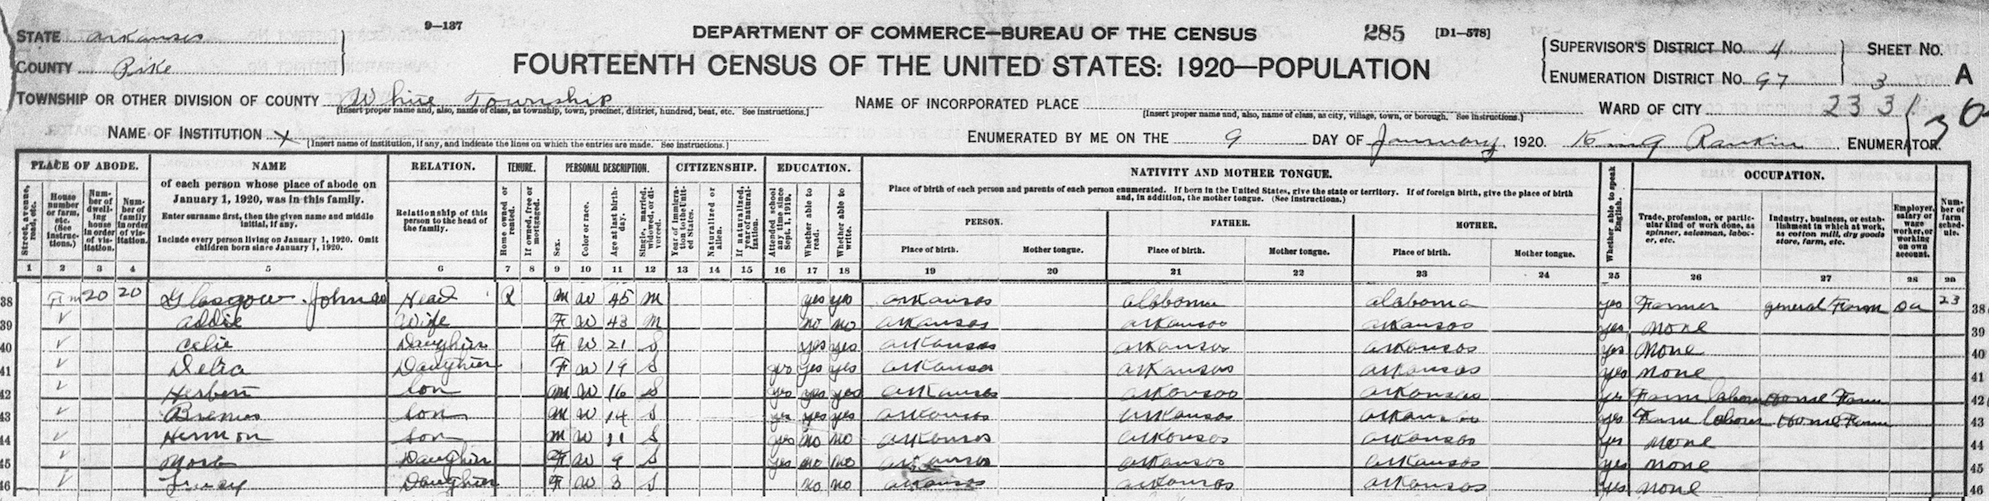 9-137
DEPARTMENT OF COMMERCE—BUREAU OF THE CENSUS
285 [D1-578]
STATE Arkansas
COUNTY Pike
FOURTEENTH CENSUS OF THE UNITED STATES: 1920—POPULATION
SUPERVISOR'S DISTRICT No. 4
ENUMERATION DISTRICT No. 97
SHEET No. 3 A
TOWNSHIP OR OTHER DIVISION OF COUNTY White Township
[Insert proper name and, also, name of class, as township, town, precinct, district, hundred, beat, etc. See instructions.]
NAME OF INCORPORATED PLACE
[Insert proper name and, also, name of class, as city, village, town, or borough. See instructions.]
WARD OF CITY 2331
NAME OF INSTITUTION X
[Insert name of institution, if any, and indicate the lines on which the entries are made. See instructions.]
ENUMERATED BY ME ON THE 9 DAY OF January, 1920. Rankin ENUMERATOR.
PLACE OF ABODE.
Street, avenue, road, etc.
House number or farm, etc. (See instructions.)
Number of dwelling house in order of visitation.
Number of family in order of visitation.
NAME
of each person whose place of abode on January 1, 1920, was in this family.
Enter surname first, then the given name and middle initial, if any.
Include every person living on January 1, 1920. Omit children born since January 1, 1920.
RELATION.
Relationship of this person to the head of the family.
TENURE.
Home owned or rented.
If owned, free or mortgaged.
PERSONAL DESCRIPTION.
Sex.
Color or race.
Age at last birthday.
Single, married, widowed, or divorced.
CITIZENSHIP.
Year of immigration to the United States.
Naturalized or alien.
If naturalized, year of naturalization.
EDUCATION.
Attended school any time since Sept. 1, 1919.
Whether able to read.
Whether able to write.
NATIVITY AND MOTHER TONGUE.
Place of birth of each person and parents of each person enumerated. If born in the United States, give the state or territory. If of foreign birth, give the place of birth and, in addition, the mother tongue. (See instructions.)
PERSON.
Place of birth. Mother tongue.
FATHER.
Place of birth. Mother tongue.
MOTHER.
Place of birth. Mother tongue.
Whether able to speak English.
OCCUPATION.
Trade, profession, or particular kind of work done, as spinner, salesman, laborer, etc.
Industry, business, or establishment in which at work, as cotton mill, dry goods store, farm, etc.
Employer, salary or wage worker, or working on own account.
Number of farm schedule.
1 2 3 4 5 6 7 8 9 10 11 12 13 14 15 16 17 18 19 20 21 22 23 24 25 26 27 28 29
38 Fm 20 20 Glasgow, John Head R M W 45 M yes yes Arkansas Alabama Alabama yes Farmer general Farm oa 23 38
39 Addie Wife F W 43 M no no Arkansas Arkansas Arkansas yes none 39
40 Celie Daughter F W 21 S yes yes Arkansas Arkansas Arkansas yes none 40
41 Delia Daughter F W 19 S yes yes Arkansas Arkansas Arkansas yes none 41
42 Herbert Son M W 16 S yes yes yes Arkansas Arkansas Arkansas yes Farm labour Home Farm 42
43 Son M W 14 S yes yes yes Arkansas Arkansas Arkansas yes Farm laborer Home Farm 43
44 Hermon Son M W 11 S yes no no Arkansas Arkansas Arkansas yes none 44
45 Daughter F W 9 S yes no no Arkansas Arkansas Arkansas yes none 45
46 Daughter F W 8 S no no Arkansas Arkansas Arkansas yes none 46